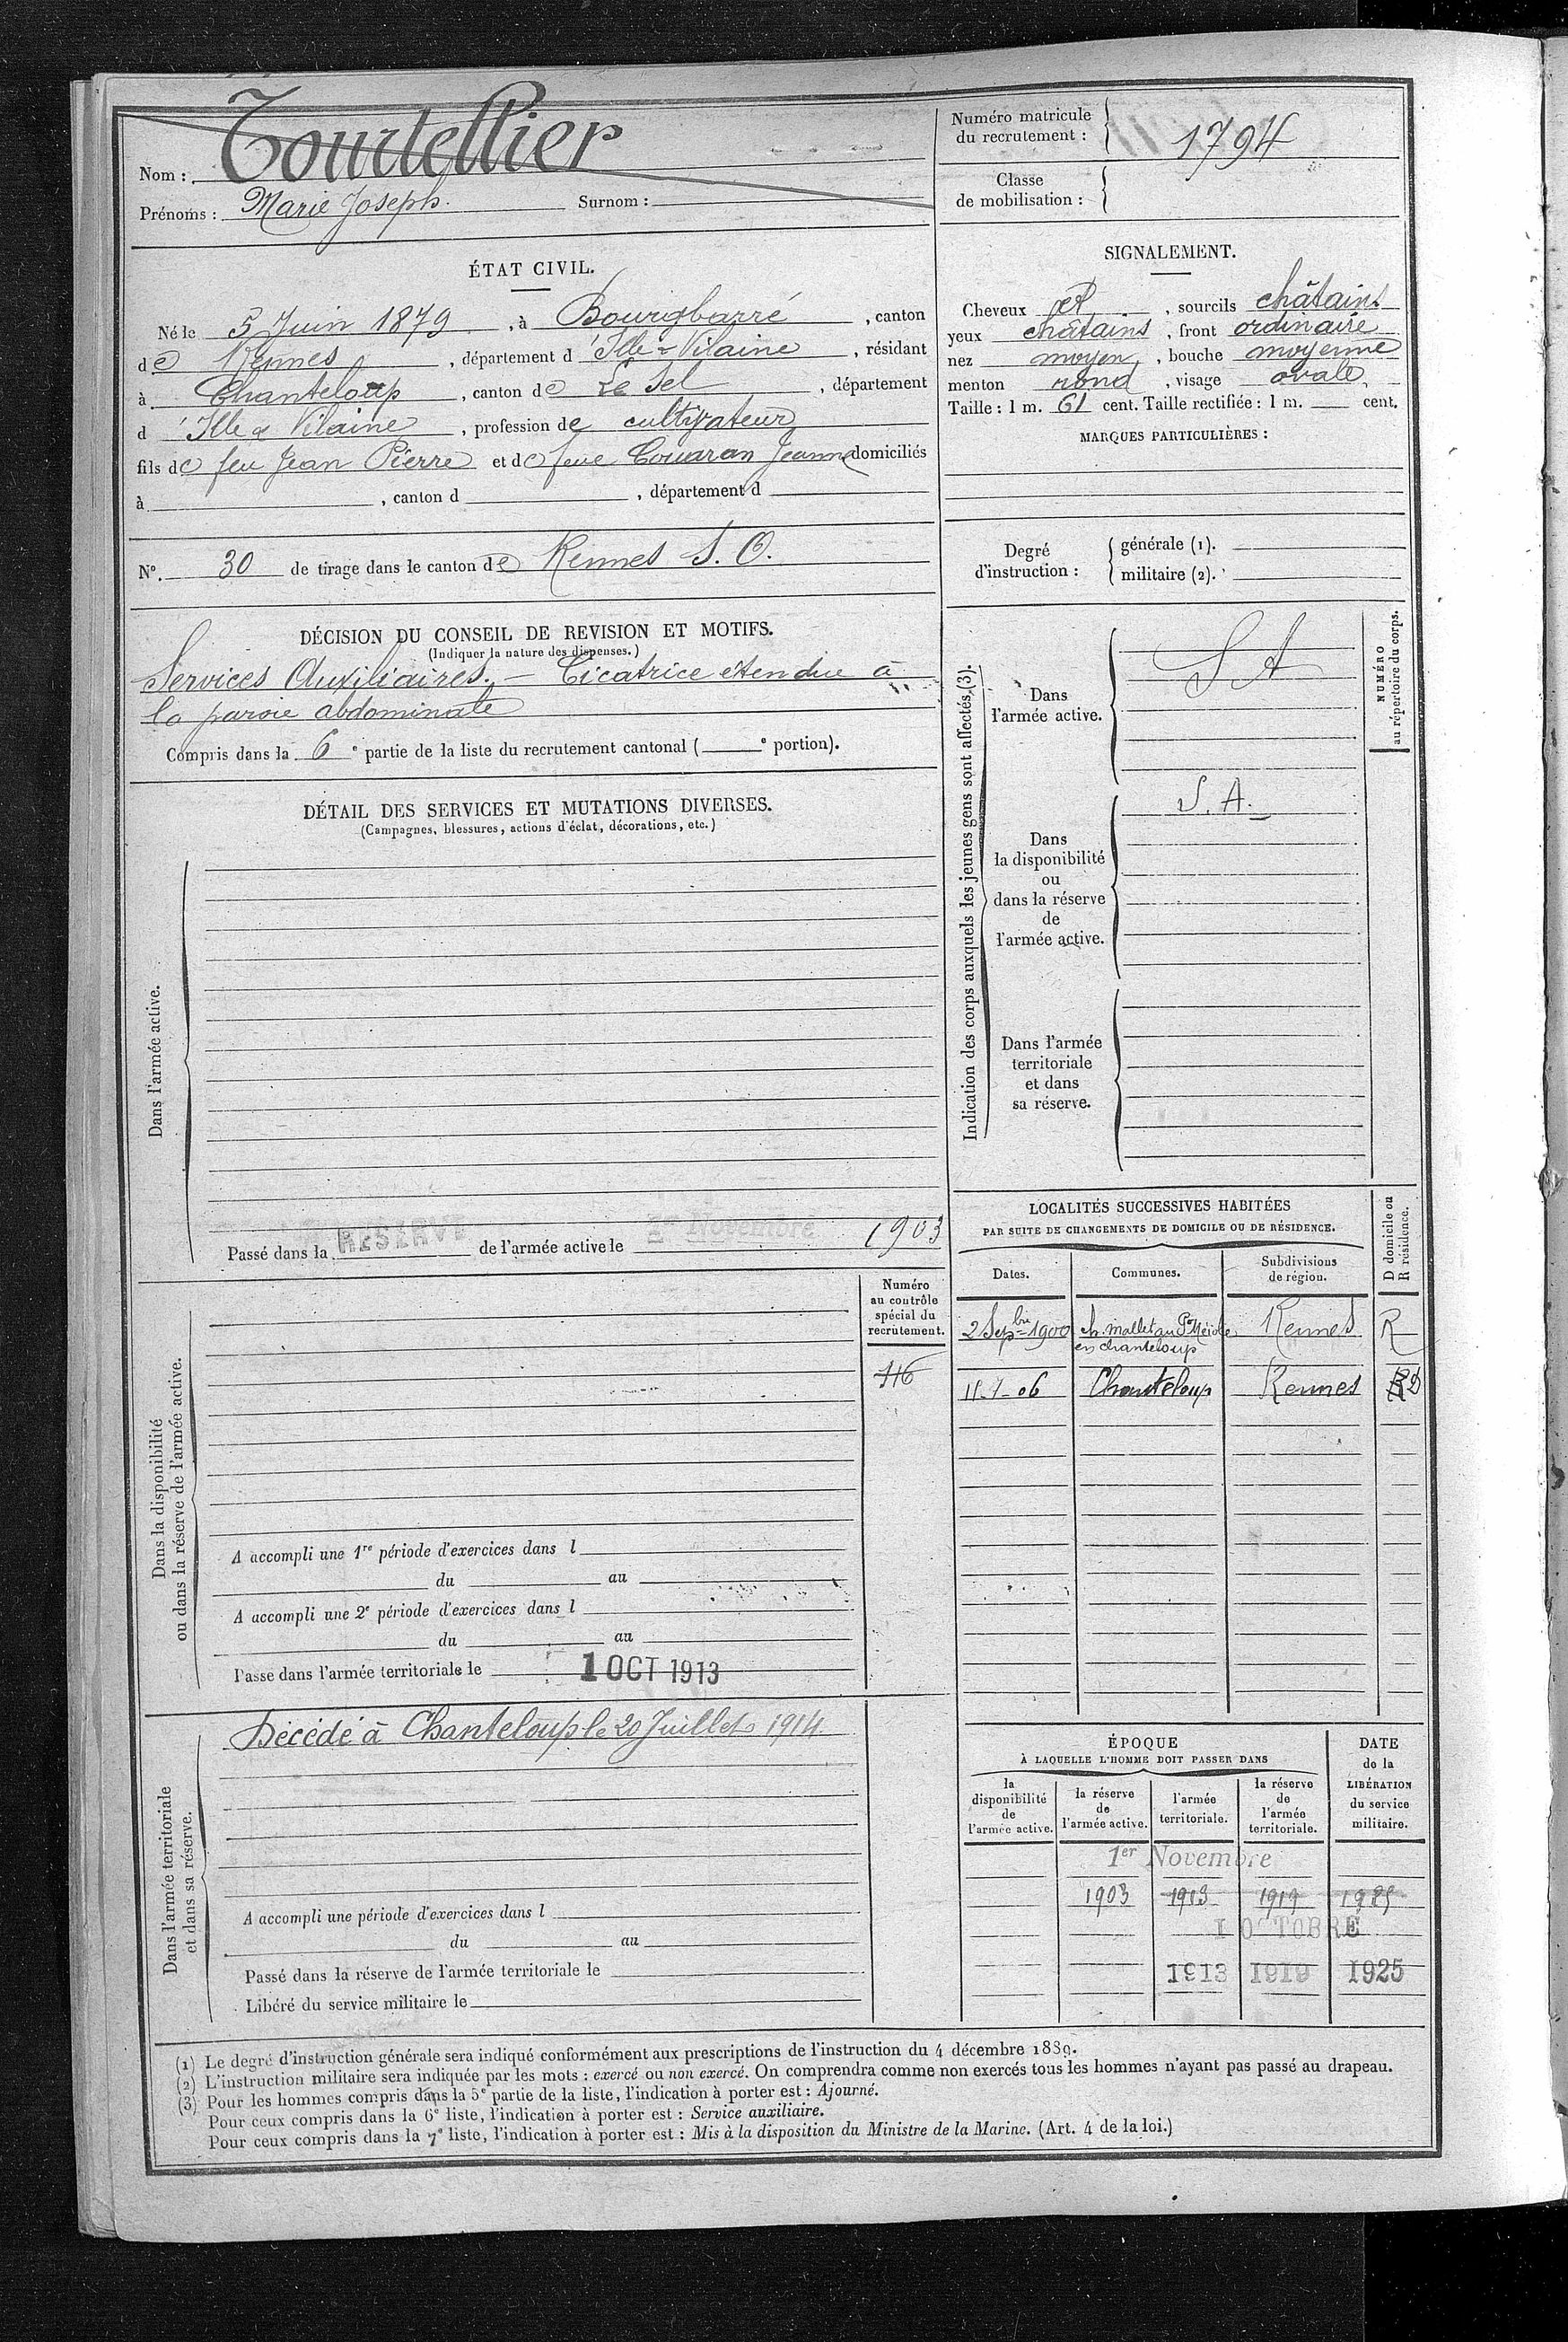 Nom : Tourtellier
Prénoms : Marie Joseph. Surnom :
Numéro matricule
du recrutement : 1794
Classe
de mobilisation :
ÉTAT CIVIL.
Né le 5 Juin 1879, à Bourgbarré, canton
de Rennes, département d'Ille-&-Vilaine, résidant
à Chanteloup, canton de Le Sel, département
d'Ille & Vilaine, profession de cultivateur
fils de feu Jean Pierre et de feue Couaran Jeanne domiciliés
à , canton d , département d
N°. 30 de tirage dans le canton de Rennes S. O.
DÉCISION DU CONSEIL DE REVISION ET MOTIFS.
(Indiquer la nature des dispenses.)
Services Auxiliaires. – Cicatrice étendue à
la paroie abdominale
Compris dans la 6e partie de la liste du recrutement cantonal ( e portion).
DÉTAIL DES SERVICES ET MUTATIONS DIVERSES.
(Campagnes, blessures, actions d'éclat, décorations, etc.)
Dans l'armée active.
Passé dans la RÉSERVE de l'armée active le 1er Novembre 1903
Dans la disponibilité
ou dans la réserve de l'armée active.
Numéro
au contrôle
spécial du
recrutement.
116
A accompli une 1re période d'exercices dans l
du au
A accompli une 2e période d'exercices dans l
du au
Passé dans l'armée territoriale le 1 OCT 1913
Dans l'armée territoriale
et dans sa réserve.
Décédé à Chanteloup le 20 Juillet 1914
A accompli une période d'exercices dans l
du au
Passé dans la réserve de l'armée territoriale le
Libéré du service militaire le
SIGNALEMENT.
Cheveux et, sourcils châtains
yeux châtains, front ordinaire
nez moyen, bouche moyenne
menton rond, visage ovale
Taille : 1 m. 61 cent. Taille rectifiée : 1 m. cent.
MARQUES PARTICULIÈRES :
Degré
d'instruction :
générale (1).
militaire (2).
Indication des corps auxquels les jeunes gens sont affectés (3).
NUMÉRO
au répertoire du corps.
Dans
l'armée active.
S A
Dans
la disponibilité
ou
dans la réserve
de
l'armée active.
S. A.
Dans l'armée
territoriale
et dans
sa réserve.
LOCALITÉS SUCCESSIVES HABITÉES
PAR SUITE DE CHANGEMENTS DE DOMICILE OU DE RÉSIDENCE.
D domicile ou
R résidence.
Dates. Communes. Subdivisions
de région.
2 Sepbre 1900 ch. mallet au Rennes R
en chanteloup
11-7-06 Chanteloup Rennes RD
ÉPOQUE
À LAQUELLE L'HOMME DOIT PASSER DANS
DATE
de la
LIBÉRATION
du service
militaire.
la
disponibilité
de
l'armée active.
la réserve
de
l'armée active.
l'armée
territoriale.
la réserve
de
l'armée
territoriale.
1er Novembre
1903 1913 1919 1925
1 OCTOBRE
1913 1919 1925
(1) Le degré d'instruction générale sera indiqué conformément aux prescriptions de l'instruction du 4 décembre 1889.
(2) L'instruction militaire sera indiquée par les mots : exercé ou non exercé. On comprendra comme non exercés tous les hommes n'ayant pas passé au drapeau.
(3) Pour les hommes compris dans la 5e partie de la liste, l'indication à porter est : Ajourné.
Pour ceux compris dans la 6e liste, l'indication à porter est : Service auxiliaire.
Pour ceux compris dans la 7e liste, l'indication à porter est : Mis à la disposition du Ministre de la Marine. (Art. 4 de la loi.)